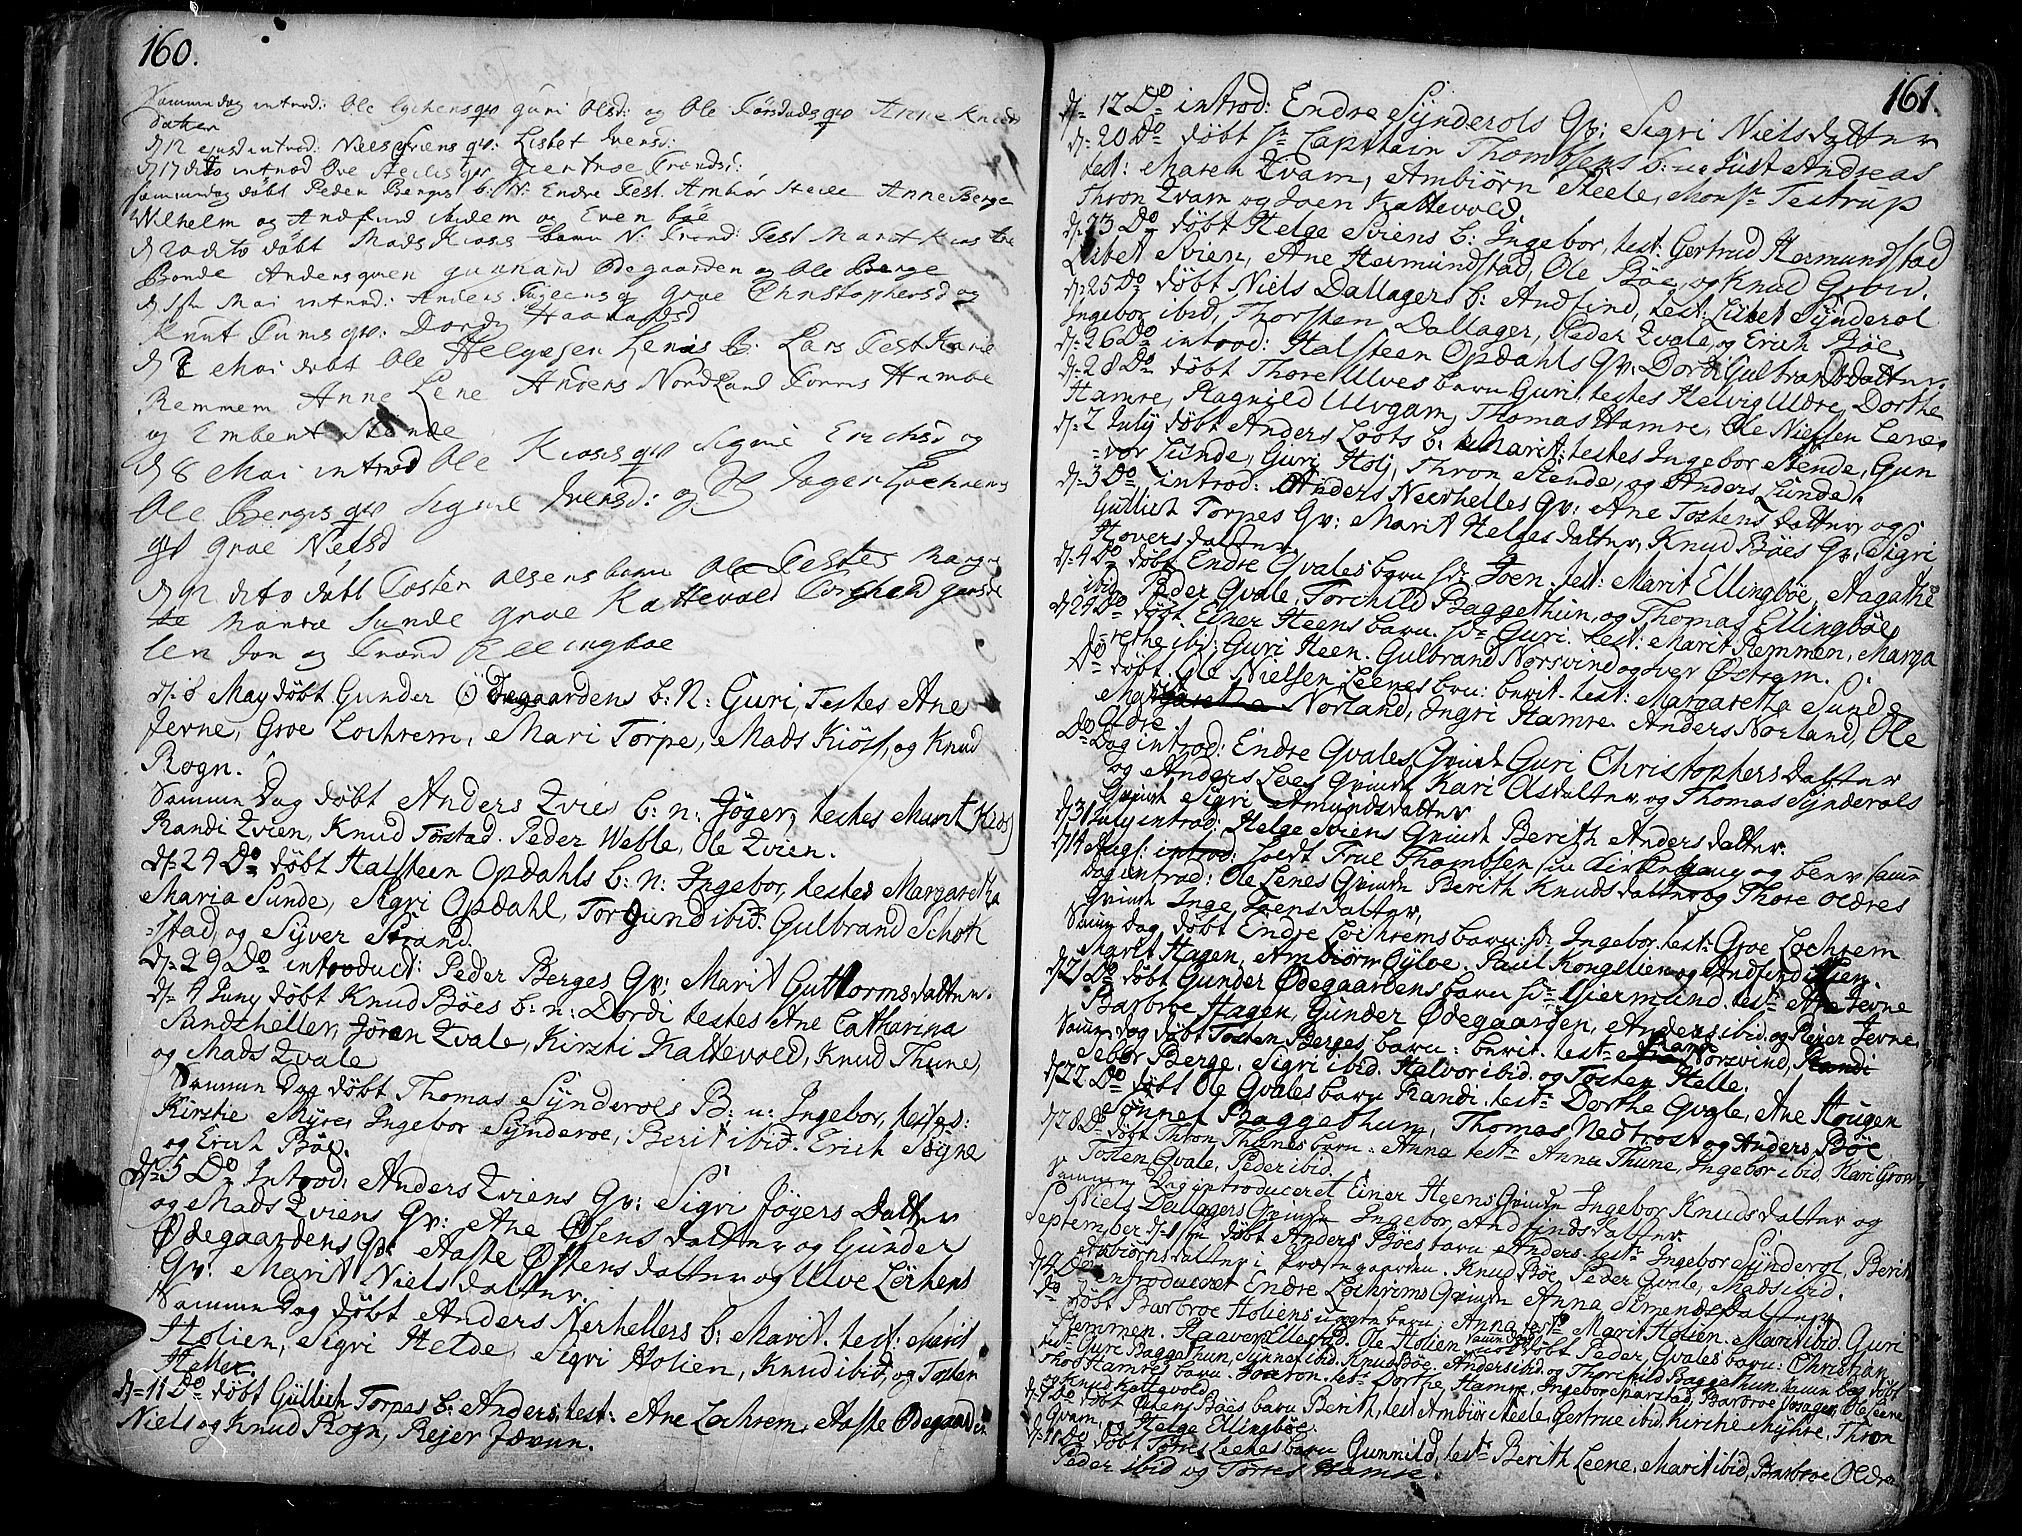 160.
Samme dag introd: Ole Lochens qv guri Olsd: og Ole Torstads qv Anne Knuds
datter
d 12 ejusd introd: Niels Sviens qv: Lisbet Iversd:
d 17 dito introd Ove Heeles qv Giertrue Trondsd:
samme dag døbt Peder Berges b: N: Endre Test Ambiør Heele Anne Berge
Wilhelm og Andfind ibidem og Even bøe
d 20 dito døbt Mads Kiøs barn N: Trond: Test Marit Kiøs
Bonde Anders qven gunnild Ødegaarden og Ole Berge
d 1ste Mai introd: Anders qv Groe Christophersd og
Knut Tums qv: Dordy Haavardsd
d Mai døbt Ole Helgesen Lenes b: Lars Test Karie
Remmem Anne Lene Anders Nordland Torres Hambe
og Embert Stende
d 8 Mai introd Ole Kiøs qv Signe Erichsd og
Ole Berges qv Signe Iversd: og Jøger Lochrens
qv Groe Nielsd
d 12 dito døbt Tosten Olsens barn Ole Testes
Marie Sunde Groe Kattevold
Jon og Trond Ellingboe
d: 8 May døbt Gunder Ødegaardens b: N: Guri, Testes Ane
Jerne, Groe Lochrem, Mari Torpe, Mads Kiøst, og Knud
Rogn.
Samme Dag døbt Anders Zvies b: n: Jøger, testes Marit Kios
Randi Zvien, Knud Torstad. Peder Weble, Ole Zvien.
d: 24 Do døbt Halsteen Opdahls b: n: Ingebor, testes Margaretha
Maria Sunde, Sigri Opdahl, Torgund ibid. Gulbrand Schott
stad, og Syver Strand.
d: 29 Do introduct: Peder Berges Qv: Marit Guttormsdatter.
d: 4 Juny døbt Knud Bøes b: n: Dordi testes Ane Catharina
Sandshellen, Jøran Zvale, Kirsti Kattevold, Knud Thune,
og Mads Zvale
Samme Dag døbt Thomas Synderoels B: n: Ingebor, testes:
Kirstie Myre, Ingebor Synderoe, Berit ibid. Erich Søyne
og Erich Bøe.
d: 5 Do Introd: Anders Zviens Qv: Sigri Jøgers Datter
og Mads Zviens Qv: Ane Olsens datter og Gunder
Ødegaardens Qv: Aaste Østens datter og Ulve Lochens
Qv: Marit Niels datter.
Samme Dag døbt Anders Nerhellers b: Marit. test: Marit
Holien, Sigri Helde, Sigri Holien, Knud ibid, og Tosten
Helle.
d: 11 Do døbt Gullich Torpes b: Anders, test: Ane Lochrem, Aaste Ødegaarden
Niels og Knud Rogn, Rejer Jævne.
161.
d: 12 Do introd: Endre Synderols Qv: Sigri Nielsdatter
d: 20 Do døbt Sr. Capitain Thombsens b: n: Just Andreas
test: Maren Zvam, Ambiørn Heele, Monsr. Testrup
Thron Zvam og Joen Kattevold.
d: 23 Do døbt Helge Sviens b: Ingebor, test: Gertrud Hermundstad
Lisbet Svien, Ane Hermundstad, Ole Bøe, og Knud Grøv.
d: 25 Do døbt Niels Dallagers b: Andfind, test: Lisbet Synderol
Ingebor ibid, Thorsten Dallager, Peder Zvale, og Erich Bøe.
d: 26 Do introd: Halsteen Opdahls Qv: Dordi Gulbrandsdatter
d: 28 Do døbt Thore Ulves barn Guri, testes Helvig Uldre, Dorthe
Hamre, Ragnild Ulvgam, Thomas Hamre, Ole Nielsen Lene.
d: 2 July døbt Anders Loots b: Marit: testes Ingebor Stende, Gun
vor Lunde, Guri Holj, Thron Stende, og Anders Lunde.
d: 3 Do introd: Anders Neerhelles Qv: Ane Tostens datter og
Gullich Torpes Qv: Marit Helges datter, Knud Bøes Qv: Sigri
Hovers datter
d: 4 Do døbt Endre Qvales barn N: Joen. test: Marit Ellingbøe, Aagathe
ibid Peder Qvale, Torchild Baggethun, og Thomas Ellingbøe
d: 24 Do døbt Einer Heens barn. N: Guri. test: Marit Remmen, Marga
rethe ibid: Guri Heen. Gulbrand Norsvind og Iver Østrem.
Do døbt Ole Nielsen Leenes barn: berit. test: Margaretha Sunde
Norland, Ingri Hamre. Anders Norland, Ole
Oldre.
Do Dag introd: Endre Qvales Qvinde Guri Christophers datter
og Anders Loes Qvinde Kari Olsdatter, og Thomas Synderols
Qvinde Sigri Amundsdatter
d: 31 July introd: Helge Sviens Qvinde Berith Anders datter.
d: 14 Augs: introd: holdt Frue Thombsen sin Kirkegang og benr. samme
Dag introd: Ole Lenes Qvinde Berith Knudsdatter og Thore Oldres
Qvinde Inge Joensdatter,
Samme dag døbt Endre Lochrems barn: N: Ingebor. test: Groe Lochrem
Marit Hagen, Ambiørn Øylve. Paul Kongelien og Andfind Lien.
d: 21 Do døbt Gunder Ødegaardens barn N: Giermund. test: Ane Jevne
Barbroe Hagen, Gunder Ødegaarden, Anders ibid. og Rejer Jevne.
Samme Dag døbt Tosten Berges barn: berit. test: Randi Norsvind, Randi
Sebor Berge. Sigri ibid. Halvor ibid. og Tosten Helle.
d: 22 Do døbt Ole Qvales barn Randi. test: Dorthe Qvale, Ane Hougen
Sønnet Baggethum, Thomas Nedtrost og Anders Bøe
d: 28 Do døbt Thron Thunes barn: Anna test: Anna Thune, Ingebor ibid, Kari Grov
Tosten Qvale, Peder ibid.
Samme Dag introduceret Einer Heens Qvinde Ingebor Knuds datter og
Niels Dallagers Qvinde Ingebor Andfinds datter
September d: 1ste døbt Anders Bøes barn Anders. test: Ingebor Synderol, Berit
Asbiørnsdatter i Præstegaarden. Knud Bøe, Peder Qvale, Mads ibid.
d: 4 Do introduceret Endre Lochrems Qvinde Anna Simensdatter
Do døbt Barbroe Holiens uægte barn: Anna test: Marit Holien. Marit ibid Guri
Remmen. Haaver Ellestad. Ole Holien Samme dag døbt Peder Qvales barn: Christian
test: Guri Baggethun, Synnef ibid. Knud Bøe, Anders ibid. og Thorchild Baggethun. Samme Dag døbt
Thor Hamres barn. Joaron. test: Dorthe Hamre, Ingebor Maristad, Barbroe Ole Leene
og Knud Kattevold.
d: 9 Do døbt Ostens Bøes barn Berith, test Ambiør Heele, Gertrue ibid. Kirstie Myhre, Thron
Qvam, og Helge Ellingbøe.
d: 11 Do døbt Torres Leenes barn Gunnild, test: Berith Leene, Marit ibid, Barbroe Oldre
Peder ibid og Torres Hamre.